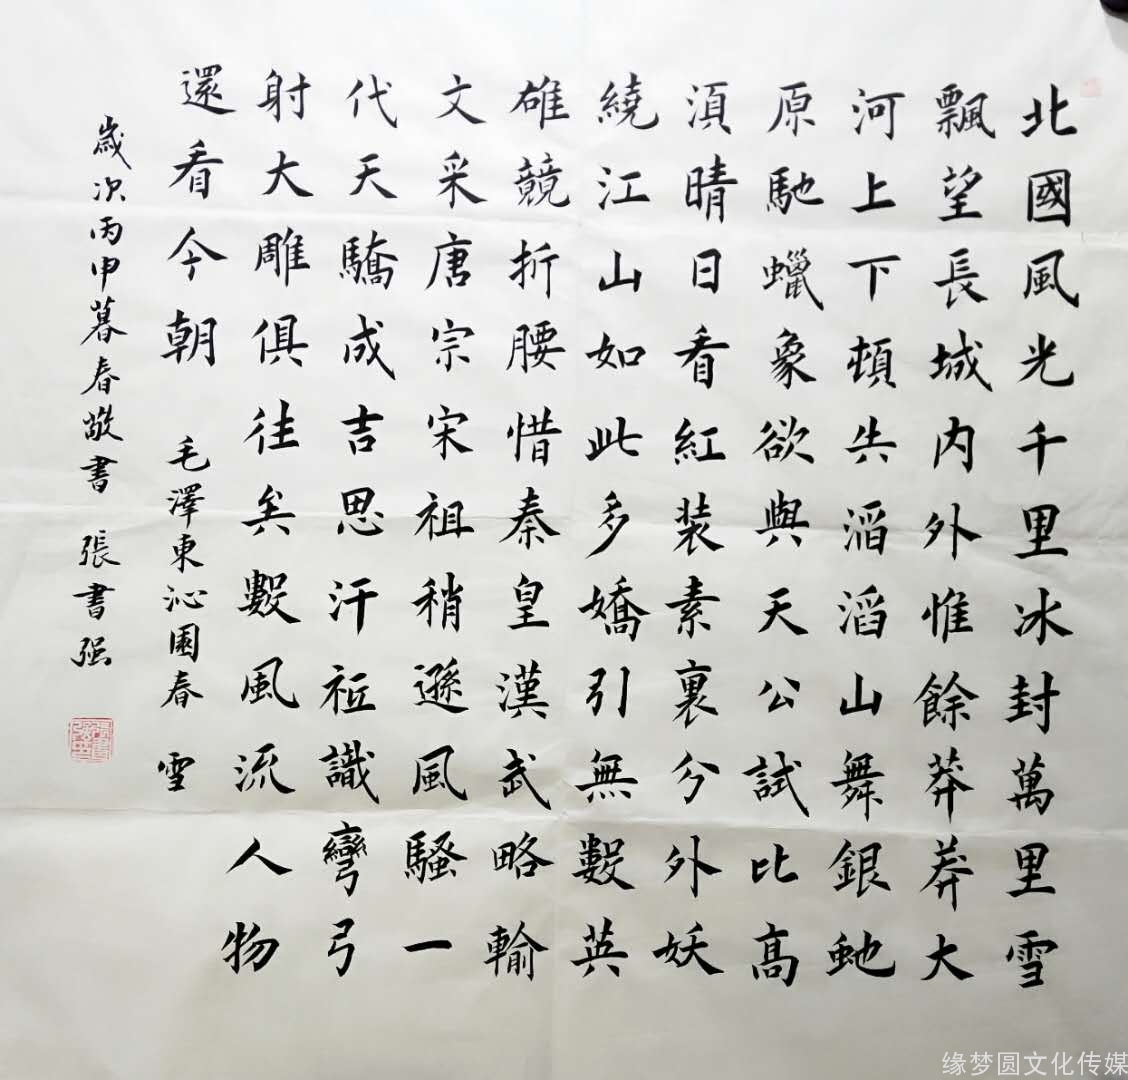 北國風光千里冰封萬里雪
飄望長城内外惟餘莽莽大
河上下頓失滔滔山舞銀虵
原馳蠟象欲與天公試比高
湏晴日看紅装素裏兮外妖
繞江山如此多嬌引無數英
雄競折腰惜秦皇漢武略輸
文采唐宗宋祖稍遜風騷一
代天驕成吉思汗祗識彎弓
射大雕俱往矣數風流人物
還看今朝 毛澤東沁園春 雪
歲次丙申暮春敬書 張書强
缘梦圆文化传媒